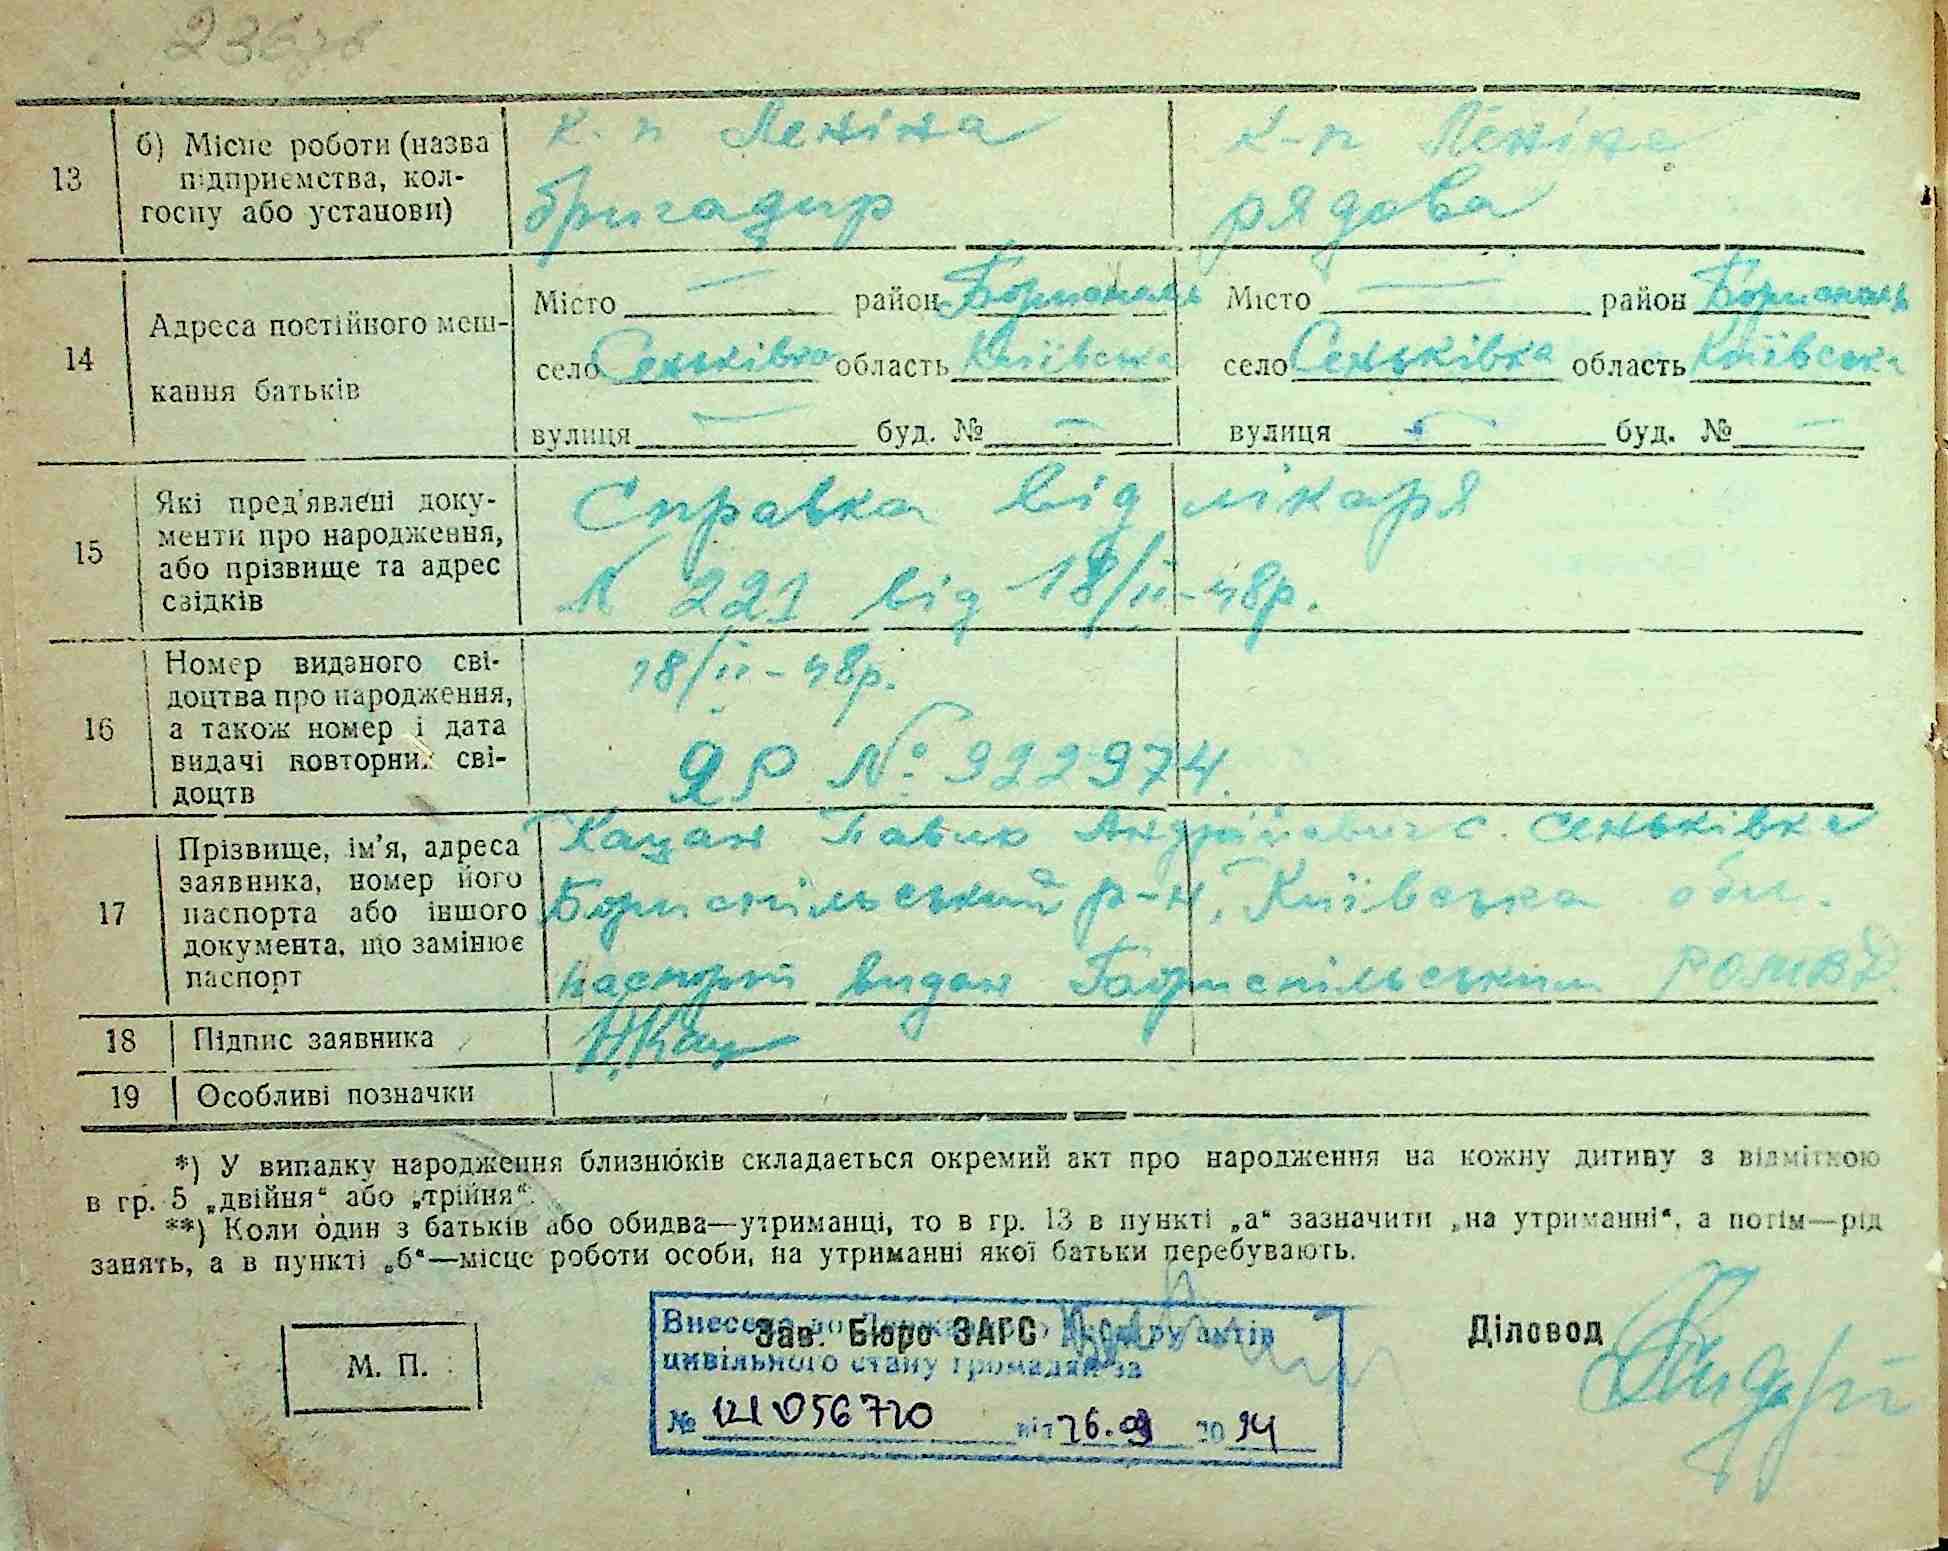 13
б) Місце роботи (назва
підприємства, кол-
госпу або установи)
к-п Леніна
бригадир
к-п Леніна
рядова
14
Адреса постійного меш-
кання батьків
Місто — район Бориспіль
село Сеньківка область Київська
вулиця — буд. № —
Місто — район Бориспіль
село Сеньківка область Київська
вулиця — буд. № —
15
Які пред'явлені доку-
менти про народження,
або прізвище та адрес
свідків
Справка від лікаря
N 221 від 18/II-48р.
16
Номер виданого сві-
доцтва про народження,
а також номер і дата
видачі повторних сві-
доцтв
18/II-48р.
ЯР № 922974.
17
Прізвище, ім'я, адреса
заявника, номер його
паспорта або іншого
документа, що замінює
паспорт
Кацан Павло Андрійович с. Сеньківка
Бориспільський р-н, Київська обл.
паспорт видан Бориспільським
18
Підпис заявника
19
Особливі позначки
*) У випадку народження близнюків складається окремий акт про народження на кожну дитину з відміткою
в гр. 5 „двійня“ або „трійня“.
**) Коли один з батьків або обидва—утриманці, то в гр. 13 в пункті „а“ зазначити „на утриманні“, а потім—рід
занять, а в пункті „б“—місце роботи особи, на утриманні якої батьки перебувають.
М. П.
Зав. Бюро ЗАГС
Діловод
Внесено до Державного реєстру актів
цивільного стану громадян за
№ від 26.09 2014